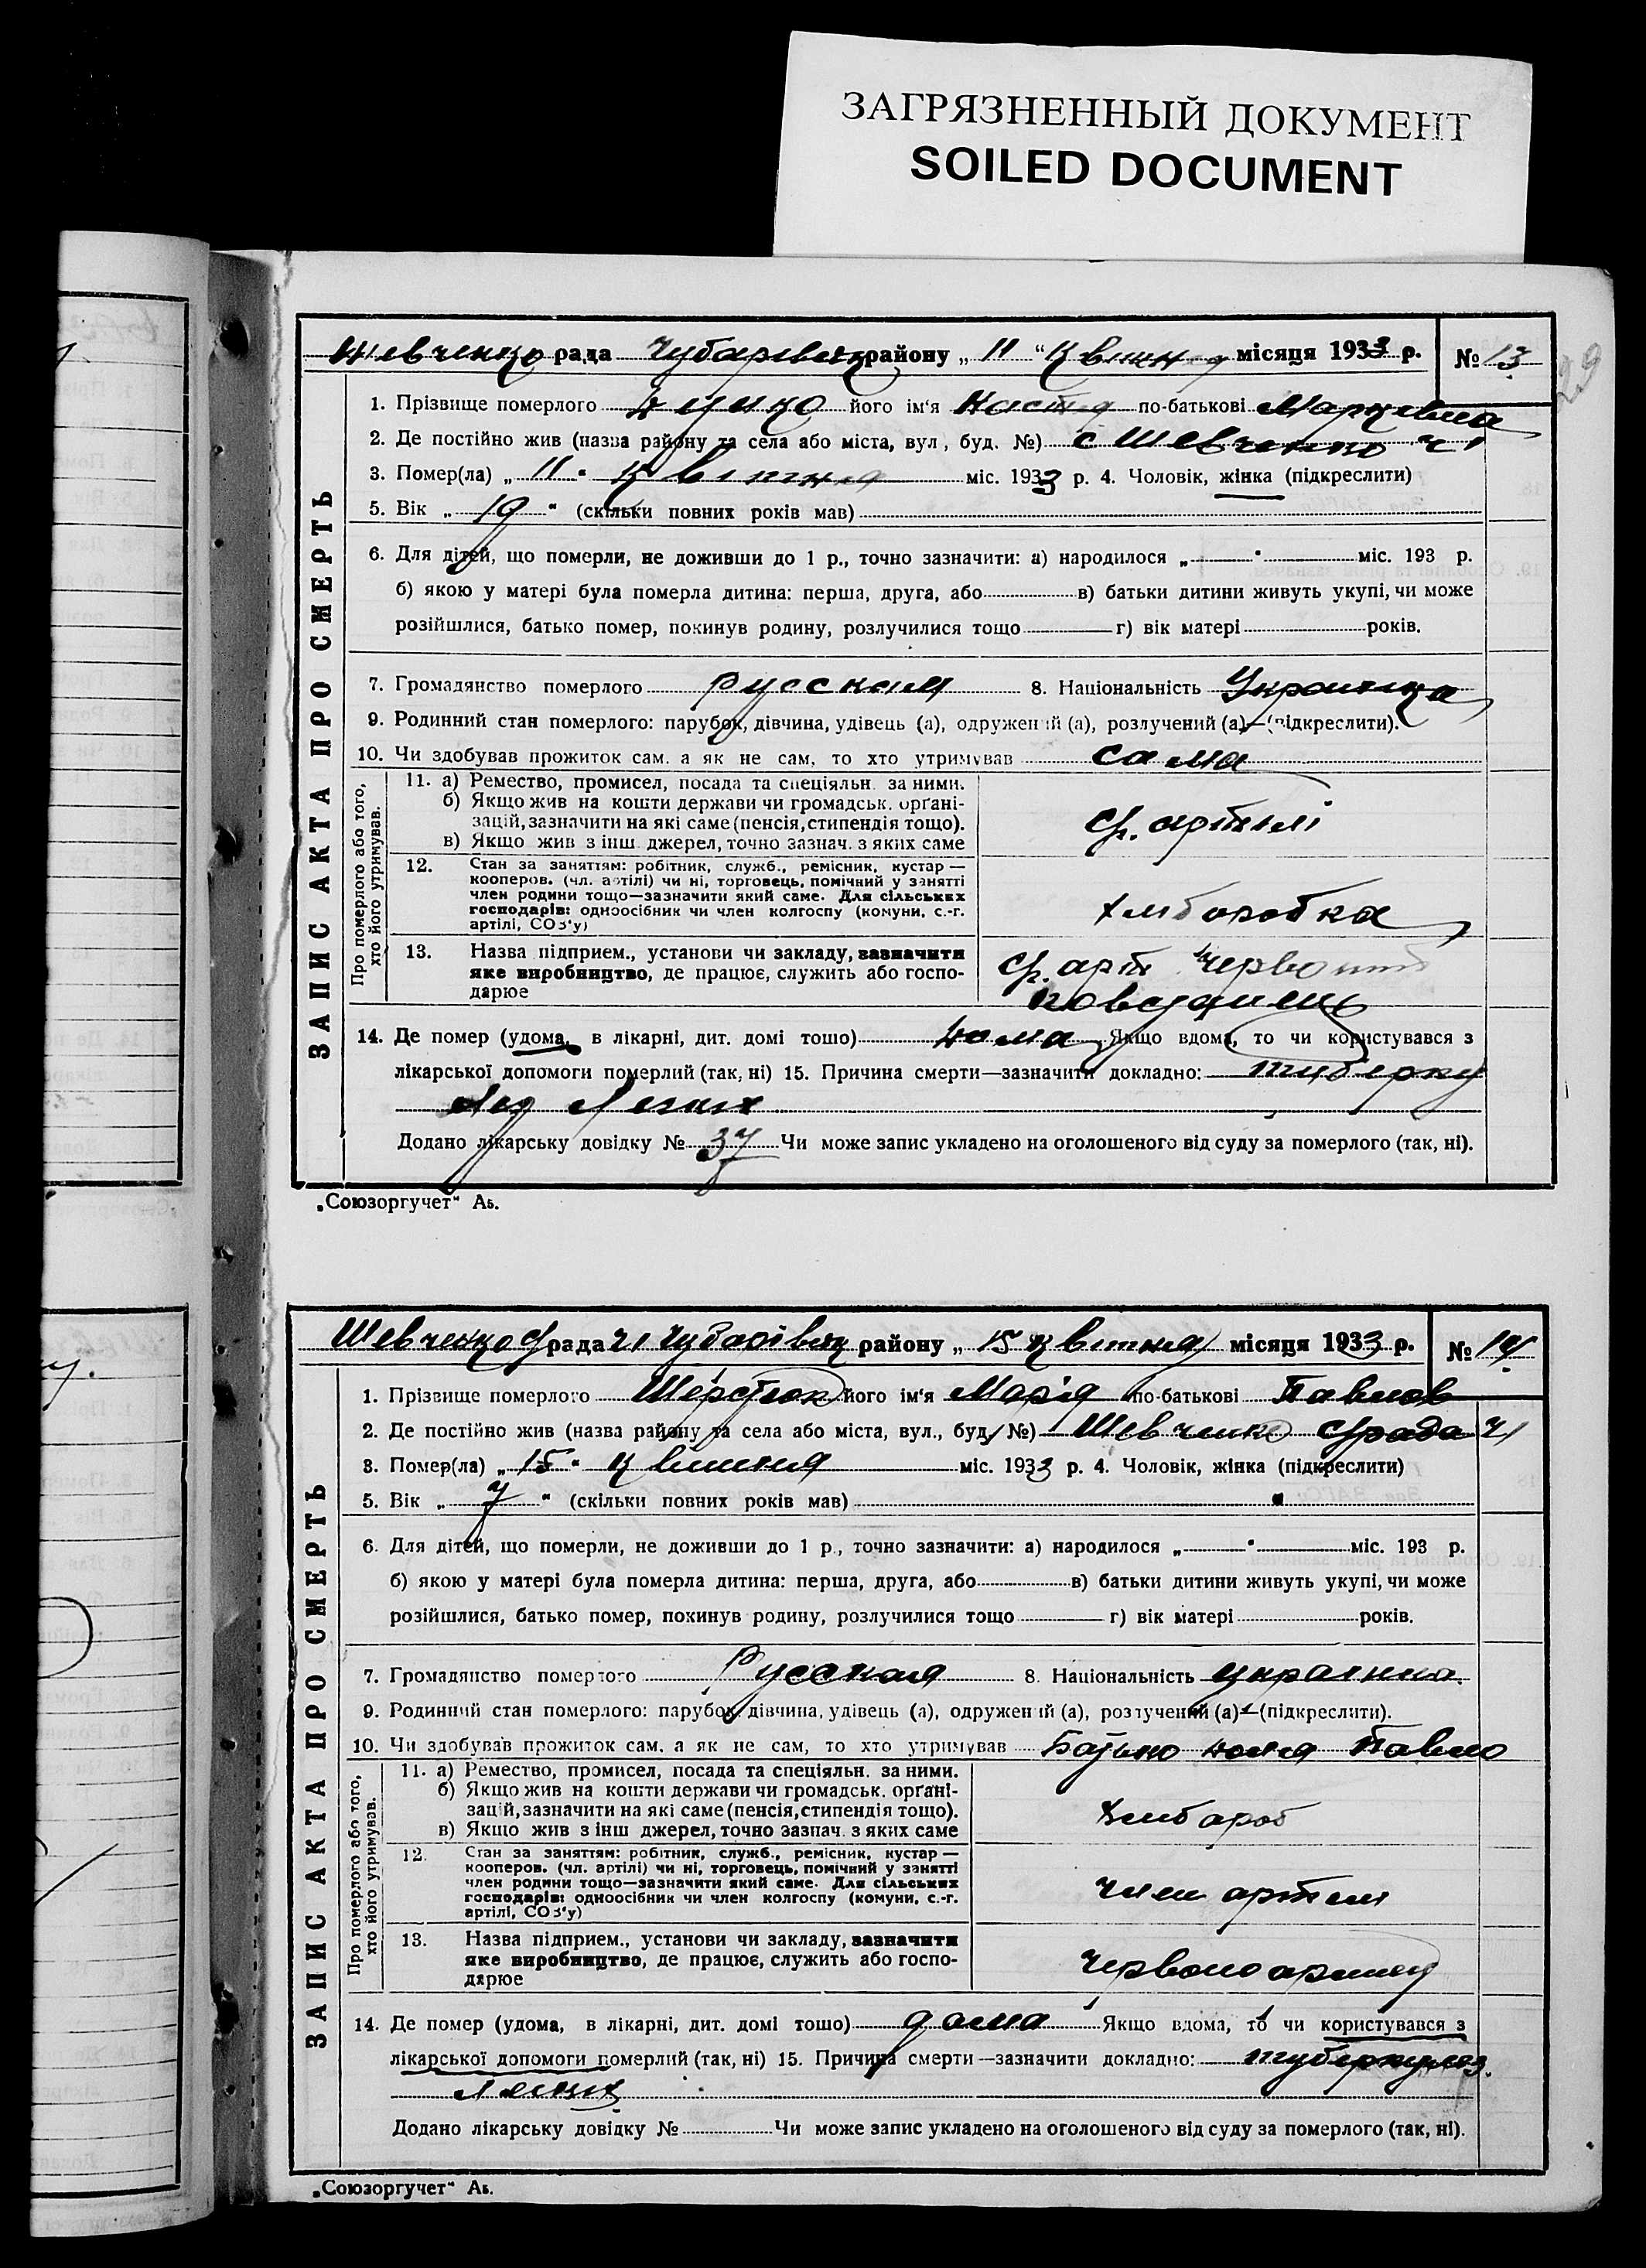 ЗАГРЯЗНЕННЫЙ ДОКУМЕНТ
SOILED DOCUMENT
29
ЗАПИС АКТА ПРО СМЕРТЬ
рада району „ 11 “ квітня місяця 1933 р. № 13
1. Прізвище померлого його ім'я Настя по-батькові
2. Де постійно жив (назва району та села або міста, вул, буд. №) с Шевченко ч 1
3. Помер(ла) „ 11 “ квітня міс. 1933 р. 4. Чоловік, жінка (підкреслити)
5. Вік „ 19 “ (скільки повних років мав)
6. Для дітей, що померли, не доживши до 1 р., точно зазначити: а) народилося „ “ міс. 193 р.
б) якою у матері була померла дитина: перша, друга, або в) батьки дитини живуть укупі, чи може
розійшлися, батько помер, покинув родину, розлучилися тощо г) вік матері років.
7. Громадянство померлого русская 8. Національність Украинка
9. Родинний стан померлого: парубок, дівчина, удівець (а), одружений (а), розлучений (а)—(підкреслити).
10. Чи здобував прожиток сам, а як не сам, то хто утримував сама
Про померлого або того, хто його утримував.
11. а) Ремество, промисел, посада та спеціяльн. за ними.
б) Якщо жив на кошти держави чи громадськ. орґані-
зацій, зазначити на які саме (пенсія, стипендія тощо).
в) Якщо жив з інш. джерел, точно зазнач. з яких саме
чл. артілі
12. Стан за заняттям: робітник, служб., ремісник, кустар —
кооперов. (чл. артілі) чи ні, торговець, помічний у занятті
член родини тощо—зазначити який саме. Для сільських
господарів: одноосібник чи член колгоспу (комуни, с.-г.
артілі, СОЗ'у)
хлiборобка
13. Назва підприєм., установи чи закладу, зазначити
яке виробництво, де працює, служить або госпо-
дарює
14. Де помер (удома, в лікарні, дит. домі тощо) дома Якщо вдома, то чи користувався з
лікарської допомоги померлий (так, ні) 15. Причина смерти—зазначити докладно: туберку
лез легких
Додано лікарську довідку № 37 Чи може запис укладено на оголошеного від суду за померлого (так, ні).
„Союзоргучет“ Аь.
ЗАПИС АКТА ПРО СМЕРТЬ
рада району „ 15 квітня місяця 1933 р. № 14
1. Прізвище померлого Шерстюк його ім'я Марія по-батькові Павлов
2. Де постійно жив (назва району та села або міста, вул., буд. №) Шевченко с/рада ч 1
3. Помер(ла) „ 15 “ квітня міс. 1933 р. 4. Чоловік, жінка (підкреслити)
5. Вік „ 7 “ (скільки повних років мав)
6. Для дітей, що померли, не доживши до 1 р., точно зазначити: а) народилося „ “ міс. 193 р.
б) якою у матері була померла дитина: перша, друга, або в) батьки дитини живуть укупі, чи може
розійшлися, батько помер, покинув родину, розлучилися тощо г) вік матері років.
7. Громадянство померлого Русская 8. Національність украінка
9. Родинний стан померлого: парубок, дівчина, удівець (а), одружений (а), розлучений (а)—(підкреслити).
10. Чи здобував прожиток сам, а як не сам, то хто утримував Батько Павло
Про померлого або того, хто його утримував.
11. а) Ремество, промисел, посада та спеціяльн. за ними.
б) Якщо жив на кошти держави чи громадськ. орґані-
зацій, зазначити на які саме (пенсія, стипендія тощо).
в) Якщо жив з інш джерел, точно зазнач. з яких саме
12. Стан за заняттям: робітник, служб., ремісник, кустар —
кооперов. (чл. артілі) чи ні, торговець, помічний у занятті
член родини тощо—зазначити який саме. Для сільських
господарів: одноосібник чи член колгоспу (комуни, с.-г.
артілі, СОЗ'у)
член артели
13. Назва підприєм., установи чи закладу, зазначити
яке виробництво, де працює, служить або госпо-
дарює
14. Де помер (удома, в лікарні, дит. домі тощо) дома Якщо вдома, то чи користувався з
лікарської допомоги померлий (так, ні) 15. Причина смерти—зазначити докладно: туберкулез
легких
Додано лікарську довідку № Чи може запис укладено на оголошеного від суду за померлого (так, ні).
„Союзоргучет“ Аь.